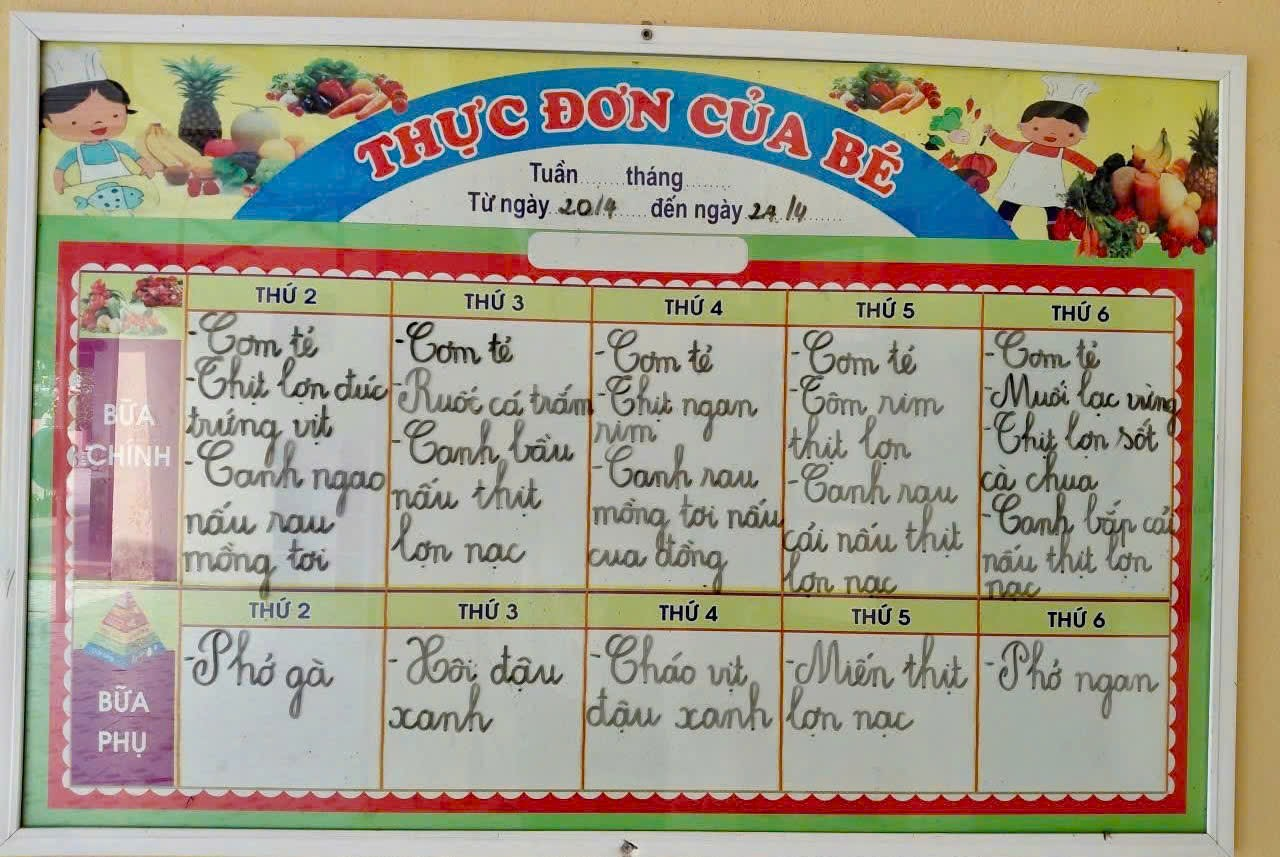 THỰC ĐƠN CỦA BÉ
Tuần ........ tháng ........
Từ ngày 20/4 đến ngày 24/4
THỨ 2
THỨ 3
THỨ 4
THỨ 5
THỨ 6
BỮA
CHÍNH
- Cơm tẻ
- Thịt lợn đúc
trứng vịt
- Canh ngao
nấu rau
mồng tơi
- Cơm tẻ
- Ruốc cá trắm
- Canh bầu
nấu thịt
lợn nạc
- Cơm tẻ
- Thịt ngan
rim
- Canh rau
mồng tơi nấu
cua đồng
- Cơm tẻ
- Tôm rim
thịt lợn
- Canh rau
cải nấu thịt
lợn nạc
- Cơm tẻ
- Muối lạc vừng
- Thịt lợn sốt
cà chua
- Canh bắp cải
nấu thịt lợn
nạc
THỨ 2
THỨ 3
THỨ 4
THỨ 5
THỨ 6
BỮA
PHỤ
- Phở gà
- Xôi đậu
xanh
- Cháo vịt
đậu xanh
- Miến thịt
lợn nạc
- Phở ngan